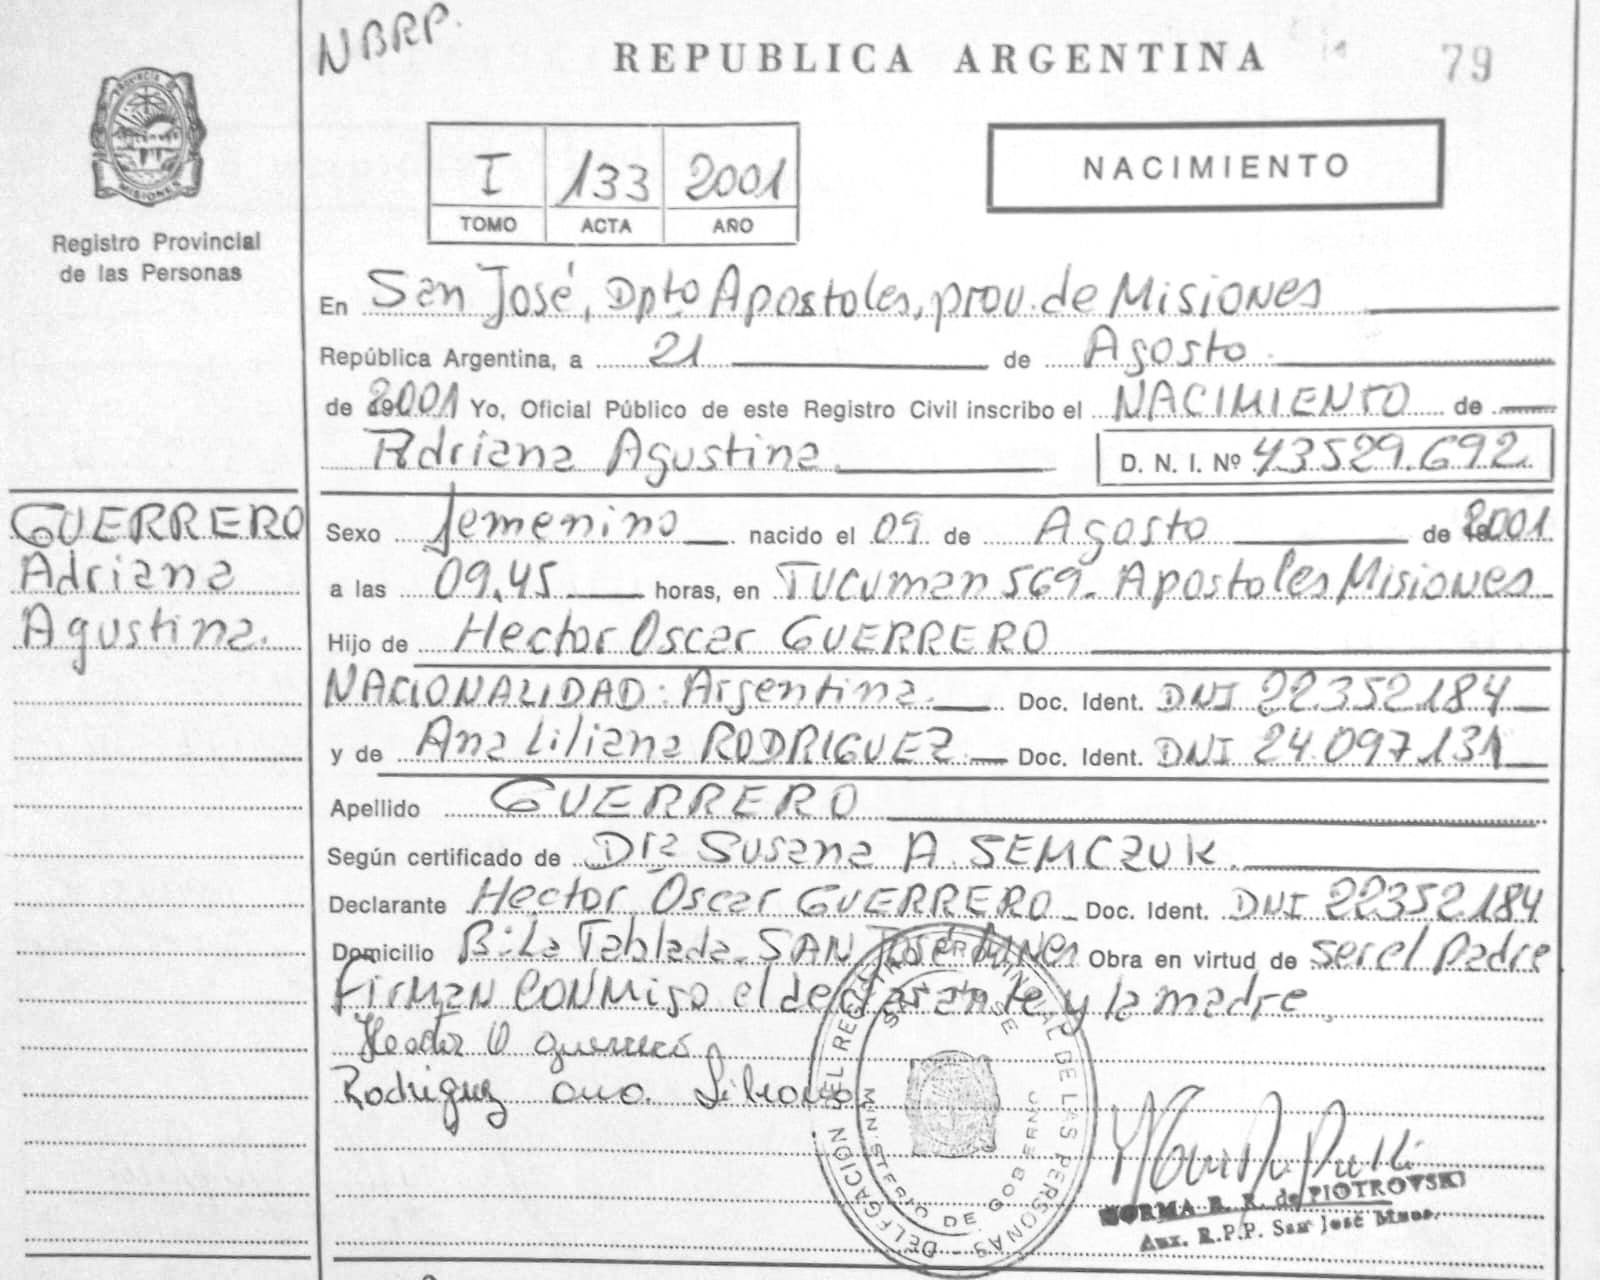 NBRP.
REPUBLICA ARGENTINA
79
PROVINCIA DE
MISIONES
Registro Provincial
de las Personas
I 133 2001
TOMO ACTA AÑO
NACIMIENTO
En San José, Dpto Apostoles, prov. de Misiones
República Argentina, a 21 de Agosto
de 2001 Yo, Oficial Público de este Registro Civil inscribo el NACIMIENTO de
Adriana Agustina D. N. I. Nº 43529.692
GUERRERO
Adriana
Agustina.
Sexo femenino nacido el 09 de Agosto de 2001
a las 09,45 horas, en Tucuman 569. Apostoles Misiones
Hijo de Hector Oscar GUERRERO
NACIONALIDAD: Argentina. Doc. Ident. DNI 22.352.184
y de Ana Liliana RODRIGUEZ Doc. Ident. DNI 24.097.131
Apellido GUERRERO
Según certificado de Dra Susana A. SEMCZUK.
Declarante Hector Oscar GUERRERO Doc. Ident. DNI 22352184
Domicilio B: La Tablada. SAN José Mnes Obra en virtud de ser el padre
Firman CONmigo el declarante y la madre.
Hector O guerrero
Rodriguez ana Liliana
DELEGACION DEL REGISTRO PROVINCIAL DE LAS PERSONAS
SAN JOSE
MINISTERIO DE GOBIERNO
NORMA R. R. de PIOTROVSKI
Aux. R.P.P. San José Mnes.